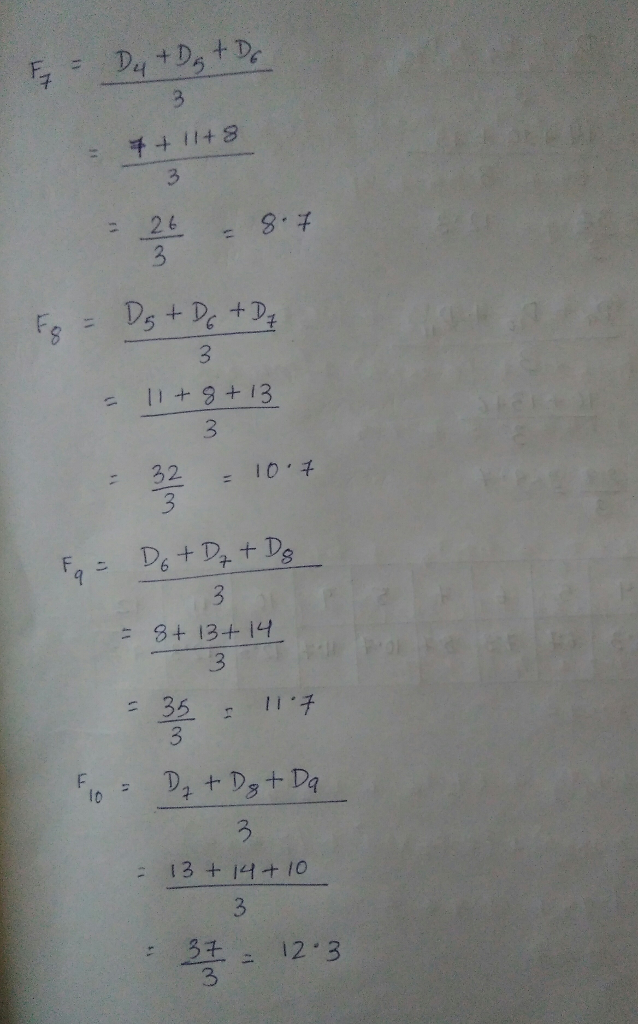 F7 = D4 + D5 + D6
3
= 7 + 11 + 8
3
= 26 = 8.7
3
F8 = D5 + D6 + D7
3
= 11 + 8 + 13
3
= 32 = 10.7
3
F9 = D6 + D7 + D8
3
= 8 + 13 + 14
3
= 35 = 11.7
3
F10 = D7 + D8 + D9
3
= 13 + 14 + 10
3
= 37 = 12.3
3